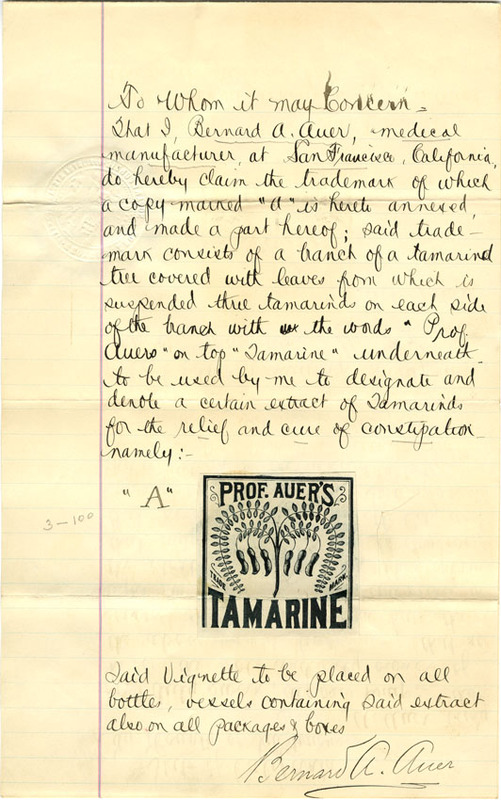 To Whom it may Concern -
That I, Bernard A. Auer, medical
manufacturer, at San Francisco, California,
do hereby claim the trademark of which
a copy marked "A" is hereto annexed,
and made a part hereof; said trade-
mark consists of a branch of a tamarind
tree covered with leaves from which is
suspended three tamarinds on each side
of the branch with the words "Prof.
Auers" on top "Tamarine" underneath
to be used by me to designate and
denote a certain extract of Tamarinds
for the relief and cure of constipation
namely:-
"A"
3-100
PROF. AUER'S
TRADE MARK
TAMARINE
Said Vignette to be placed on all
bottles, vessels containing said extract
also on all packages & boxes
Bernard A. Auer